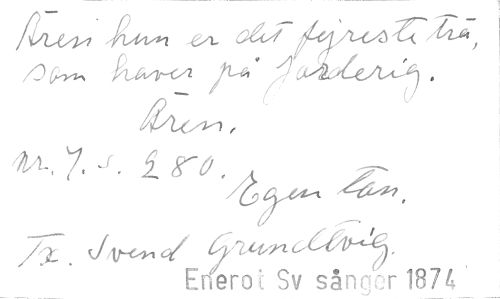 Ären hun er det fejreste trä,
som haver på Jorderig.
Ären.
nr. 7. s. 280.
Egen ton.
Tx. Svend Grundtvig.
Enerot Sv sånger 1874